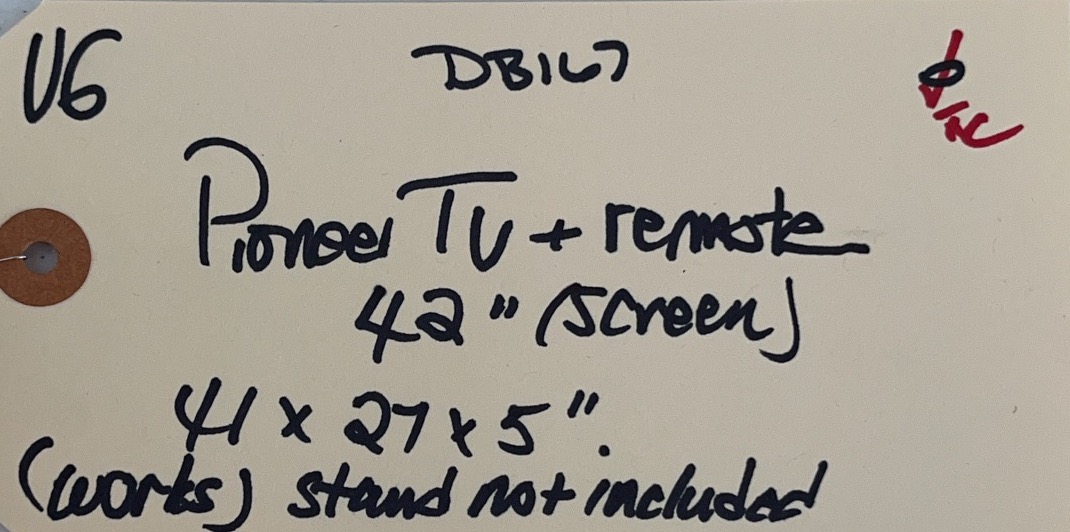 VG DB167
Pioneer TV + remote
42" (screen)
41 x 27 x 5".
(works) stand not included